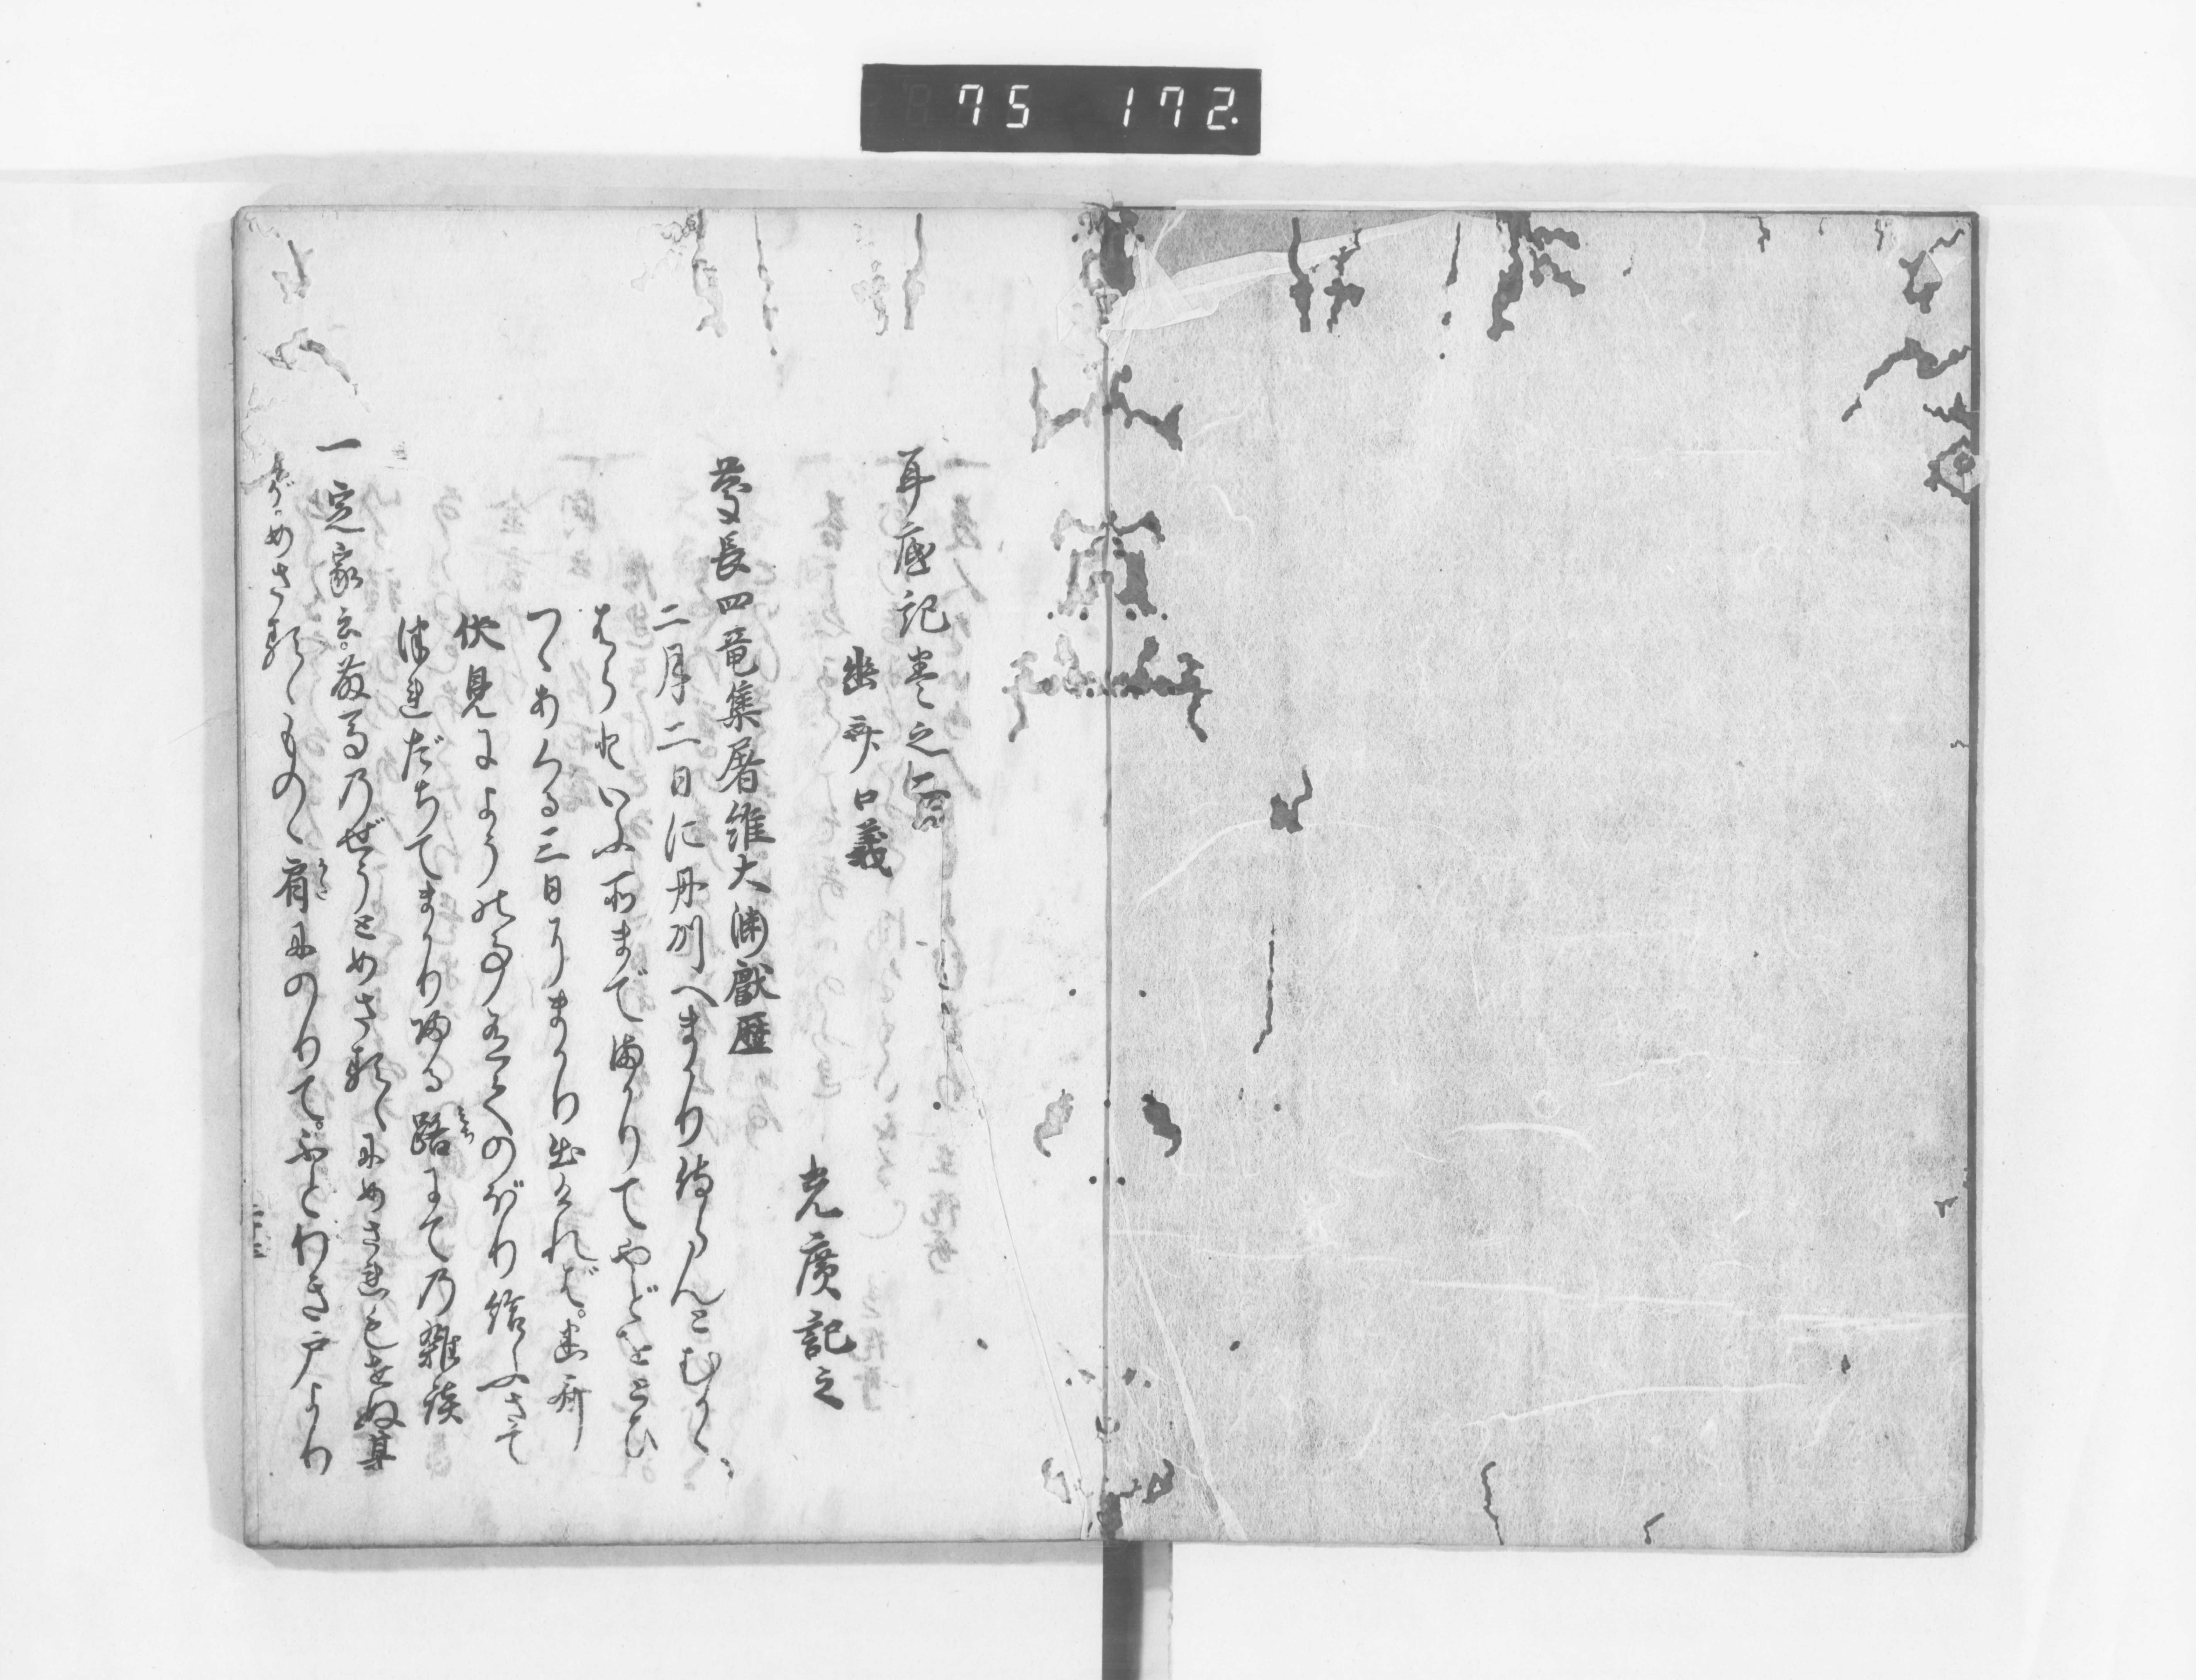 75 172.
耳底記巻之
幽斎口義
光廣記之
慶長四竜集屠維大渊獻歴
二月二日に丹州へまかり侍らんとむかへ
はらといふ所まで満かりてやどをとひ
つゝあくる三日にまかり出けれバ。幽斎
伏見によう の事有てのぼり給ふさて
津連だちてまかり帰る路にて乃雑談
一定家云。 乃ぜうとめさるゝにめさ連も 其
めさるゝものゝ肩にのりて。ふとわき戸より